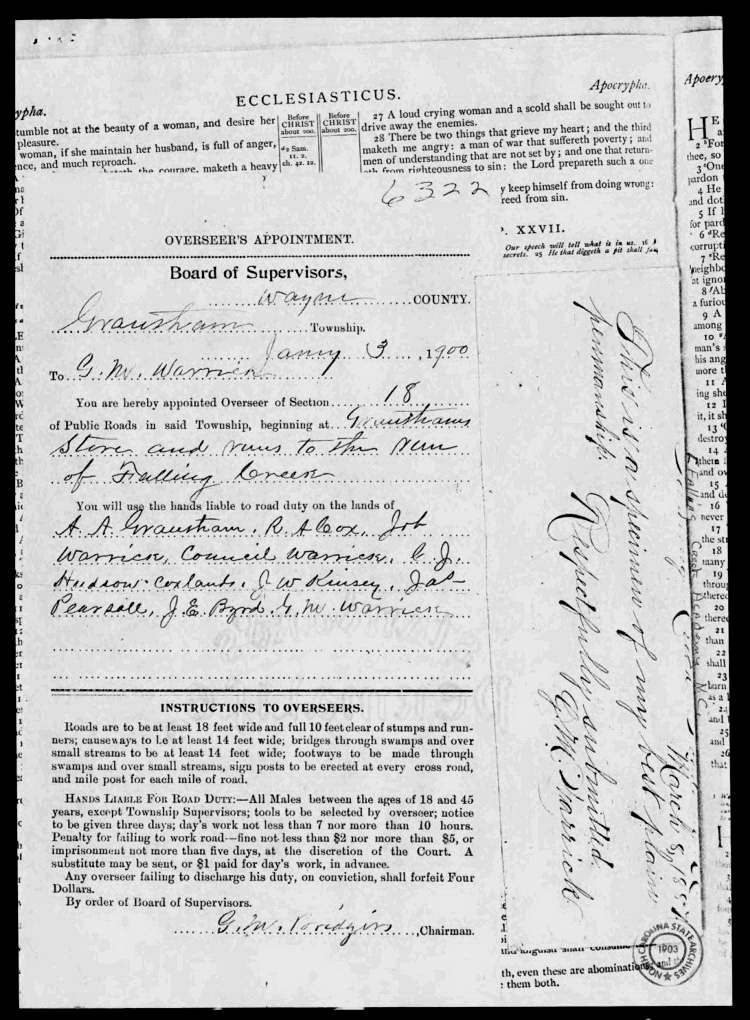 ECCLESIASTICUS.
Apocrypha.
Apocry
ypha.
tumble not at the beauty of a woman, and desire her
pleasure.
woman, if she maintain her husband, is full of anger,
nce, and much reproach.
the courage, maketh a heavy
Before
CHRIST
about 200.
2 Sam.
11. 2.
ch. 42. 12.
Before
CHRIST
about 200.
27 A loud crying woman and a scold shall be sought out to
drive away the enemies.
28 There be two things that grieve my heart; and the third
maketh me angry: a man of war that suffereth poverty; and
men of understanding that are not set by; and one that return-
eth from righteousness to sin: the Lord prepareth such a one
6322
y keep himself from doing wrong:
reed from sin.
XXVII.
Our speech will tell what is in us.
secrets. 25 He that diggeth a pit shall
OVERSEER'S APPOINTMENT.
Board of Supervisors,
Wayne COUNTY.
Grantham Township.
Jany 3, 1900
To G. M. Warrick
You are hereby appointed Overseer of Section 18
of Public Roads in said Township, beginning at Granthams
Store and runs to the run
of Falling Creek
You will use the hands liable to road duty on the lands of
A. A. Grantham, R. A Cox, Job
Warrick, Council Warrick, C. J.
Hudson Coxlands, J W Kinsey, Jas
Pearsall, J. E. Byrd, G. M. Warrick
INSTRUCTIONS TO OVERSEERS.
Roads are to be at least 18 feet wide and full 10 feet clear of stumps and run-
ners; causeways to be at least 14 feet wide; bridges through swamps and over
small streams to be at least 14 feet wide; footways to be made through
swamps and over small streams, sign posts to be erected at every cross road,
and mile post for each mile of road.
HANDS LIABLE FOR ROAD DUTY:—All Males between the ages of 18 and 45
years, except Township Supervisors; tools to be selected by overseer; notice
to be given three days; day's work not less than 7 nor more than 10 hours.
Penalty for failing to work road—fine not less than $2 nor more than $5, or
imprisonment not more than five days, at the discretion of the Court. A
substitute may be sent, or $1 paid for day's work, in advance.
Any overseer failing to discharge his duty, on conviction, shall forfeit Four
Dollars.
By order of Board of Supervisors.
G. M. Bridgers, Chairman.
Falling Creek Academy N.C.
March 8, 188
This is a specimen of my best plain
penmanship. Respectfully submitted.
G. M. Warrick
th, even these are abominations
them both.
NORTH CAROLINA STATE ARCHIVES
1903